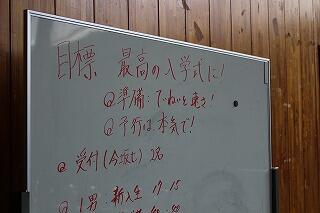 目標 最高の入学式に!
準備:ていねいと速さ!
予行は本気で!
受付(今坂七)2名
1男:新入生 17.15